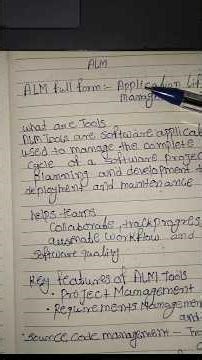 ALM
ALM full form:- Application Lif
Manag
what are Tools
ALM Tools are software applicat
used to manage the complete
cycle of a software project
planning and development t
deployment and maintenance
helps teams
Collaborate, track progres
automate workflow and
software quality
Key features of ALM Tools
• Project Management
• Requirements Managemen
and
• Source code management - Tra